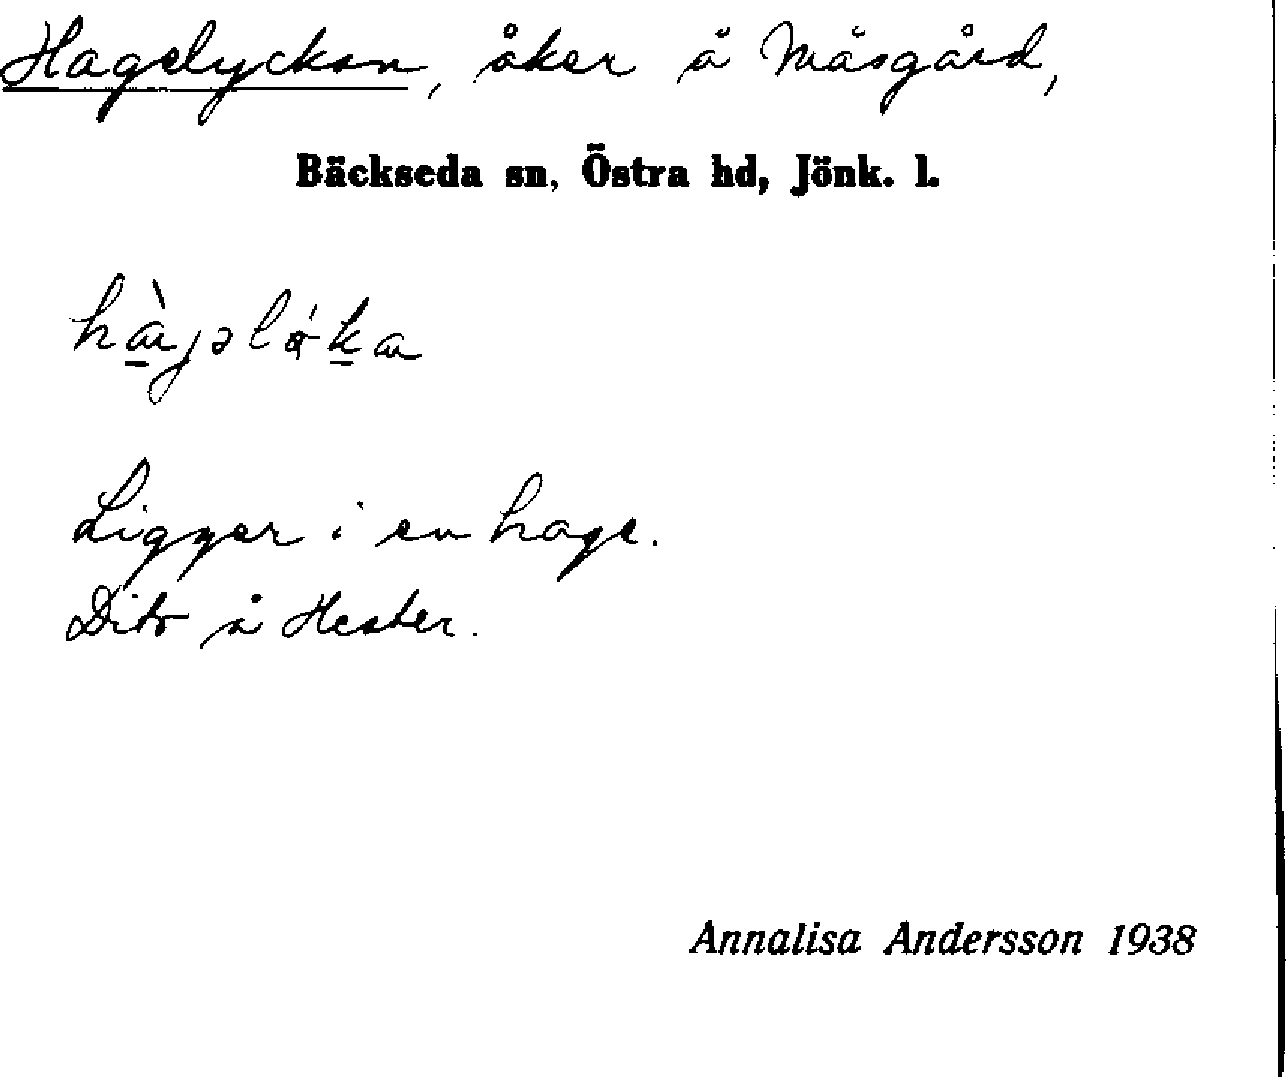 Hagelyckan, åker å Måsgård,
Bäckseda sn, Östra hd, Jönk. l.
Ligger i en hage.
Dito å Hester.
Annalisa Andersson 1938